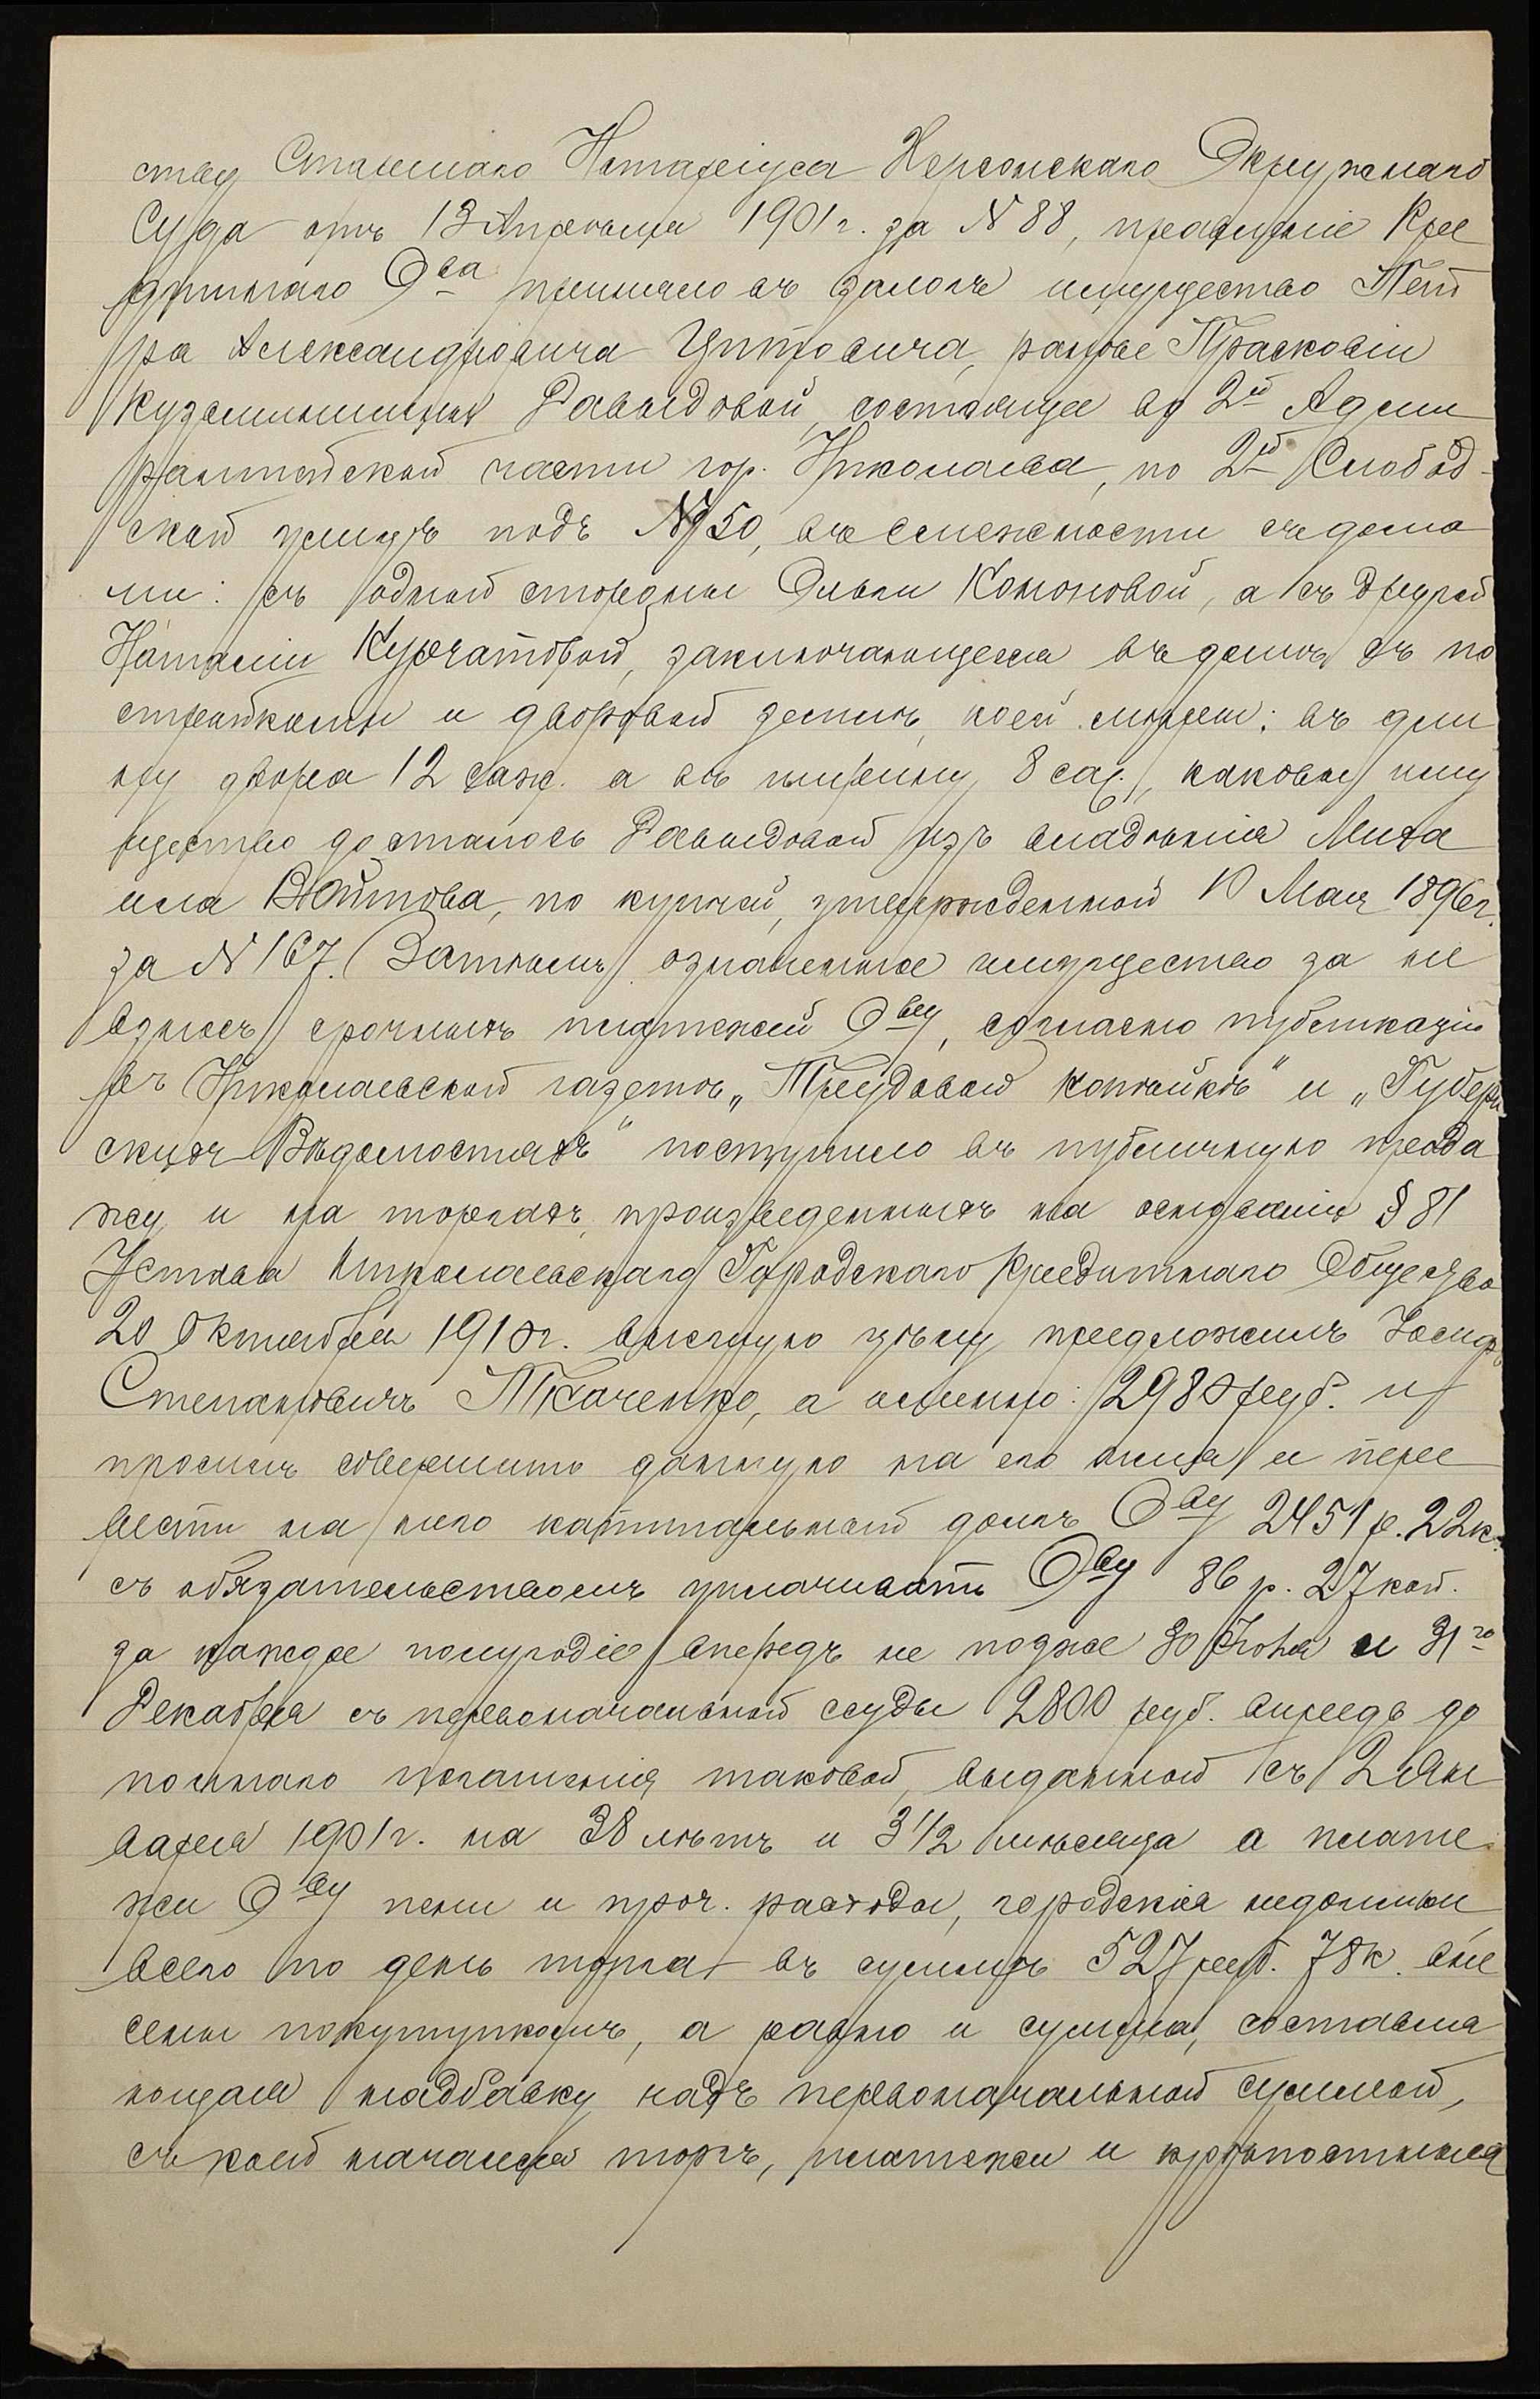 ству Старшаго Нотаріуса Херсонскаго Окружнаго
Суда отъ 13 Апрѣля 1901 г. за № 88, правленіе Кре
дитнаго Оба приняло въ залогъ имущество Пет
ра Александровича Цитовича, ранѣе Прасковіи
Кузьминишны Давыдовой, состоящее во 2й Адми
ралтейской части гор. Николаева, по 2й Слобод-
ской улицѣ подъ № 50, въ смежности съ дома
ми: съ одной стороны Ольги Кононовой, а съ другой
Наталіи Курчатовой, заключающееся въ домѣ съ по
стройками и дворовой землѣ, коей мѣрою: въ дли
ну двора 12 саж. а въ ширину 8 саж., каковое иму
щество досталось Давыдовой изъ владѣнія Миха
ила Войтова, по купчей, утвержденной 10 Мая 1896 г.
за № 167. Затѣмъ означенное имущество за не
взносъ срочныхъ платежей Ову, согласно публикаціи
въ Николаевской газетѣ „Трудовой копѣйкѣ" и „Губерн
скихъ Вѣдомостяхъ" поступило въ публичную прода
жу и на торгахъ, произведенныхъ на основаніи § 81
Устава Николаевскаго Городскаго Кредитнаго Общества
20 Октября 1910 г. высшую цѣну предложилъ Іосифъ
Степановичъ Ткаченко, а именно: 2980 руб. и
просилъ совершить данную на его имя и пере
вести на него капитальный долгъ Ову 2451 р. 22 к.
съ обязательствомъ уплачивать Ову 86 р. 27 коп.
за каждое полугодіе впередъ не позже 30 Іюня и 31го
Декабря съ первоначальной ссуды 2800 руб. впредь до
полнаго погашенія таковой, выданной съ 2 Ян
варя 1901 г. на 38 лѣтъ и 3 1/2 мѣсяца а плате
жи Ову пени и проч. расходы, городскія недоимки
всего по день торга въ суммѣ 527 руб. 78 к. вне
сены покупщикомъ, а равно и сумма, составля
ющая надбавку надъ первоначальной суммой,
съ коей начался торгъ, платежи и крѣпостныя